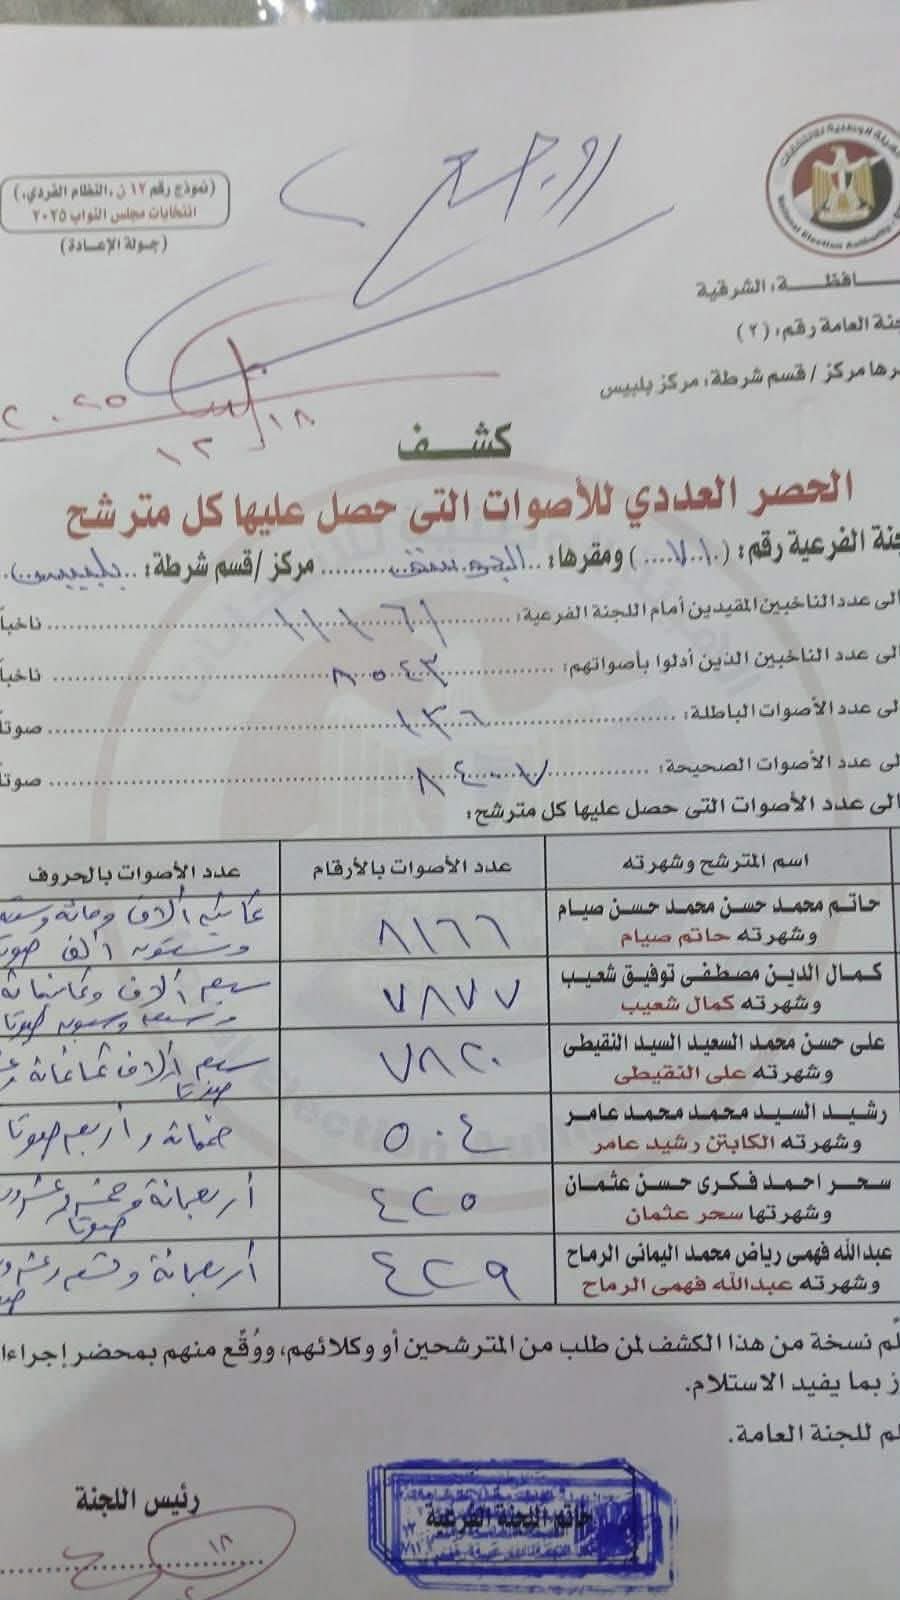 الهيئة الوطنية للانتخابات
National Election Authority
(نموذج رقم ١٢ ن. النظام الفردي.)
انتخابات مجلس النواب ٢٠٢٥
(جولة الإعادة)
روجع
افظة: الشرقية
جنة العامة رقم: (٢)
رها مركز / قسم شرطة: مركز بلبيس
١٨
١٢
٢٠٢٥
كشف
الحصر العددي للأصوات التى حصل عليها كل مترشح
جنة الفرعية رقم: (٧١٠) ومقرها: الجوسق مركز/قسم شرطة: بلبيس
الى عدد الناخبين المقيدين أمام اللجنة الفرعية: ١١١٦١ ناخباً
الى عدد الناخبين الذين أدلوا بأصواتهم: ٨٥٤٣ ناخباً
لى عدد الأصوات الباطلة: ١٣٦ صوتاً
لى عدد الأصوات الصحيحة: ٨٤٠٧ صوتاً
الى عدد الأصوات التى حصل عليها كل مترشح:
اسم المترشح وشهرته عدد الأصوات بالأرقام عدد الأصوات بالحروف
حاتم محمد حسن محمد حسن صيام
وشهرته حاتم صيام ٨١٦٦ ثمانية آلاف ومائة وستة
وستون
كمال الدين مصطفى توفيق شعيب
وشهرته كمال شعيب ٧٨٧٧ سبعة آلاف وثمانمائة
وسبعة وسبعون صوتا
على حسن محمد السعيد السيد النقيطى
وشهرته على النقيطى ٧٨٢٠ سبعة آلاف ثمانمائة
صوتا
رشيد السيد محمد محمد عامر
وشهرته الكابتن رشيد عامر ٥٠٤ خمسمائة وأربعة صوتا
سحر احمد فكرى حسن عثمان
وشهرتها سحر عثمان ٤٢٥ أربعمائة وخمسة وعشرون
صوتا
عبدالله فهمى رياض محمد اليمانى الرماح
وشهرته عبدالله فهمى الرماح ٤٢٩ أربعمائة وتسعة
لّم نسخة من هذا الكشف لمن طلب من المترشحين أو وكلائهم، ووُقّع منهم بمحضر إجراءا
ز بما يفيد الاستلام.
لم للجنة العامة.
خاتم اللجنة الفرعية
رئيس اللجنة